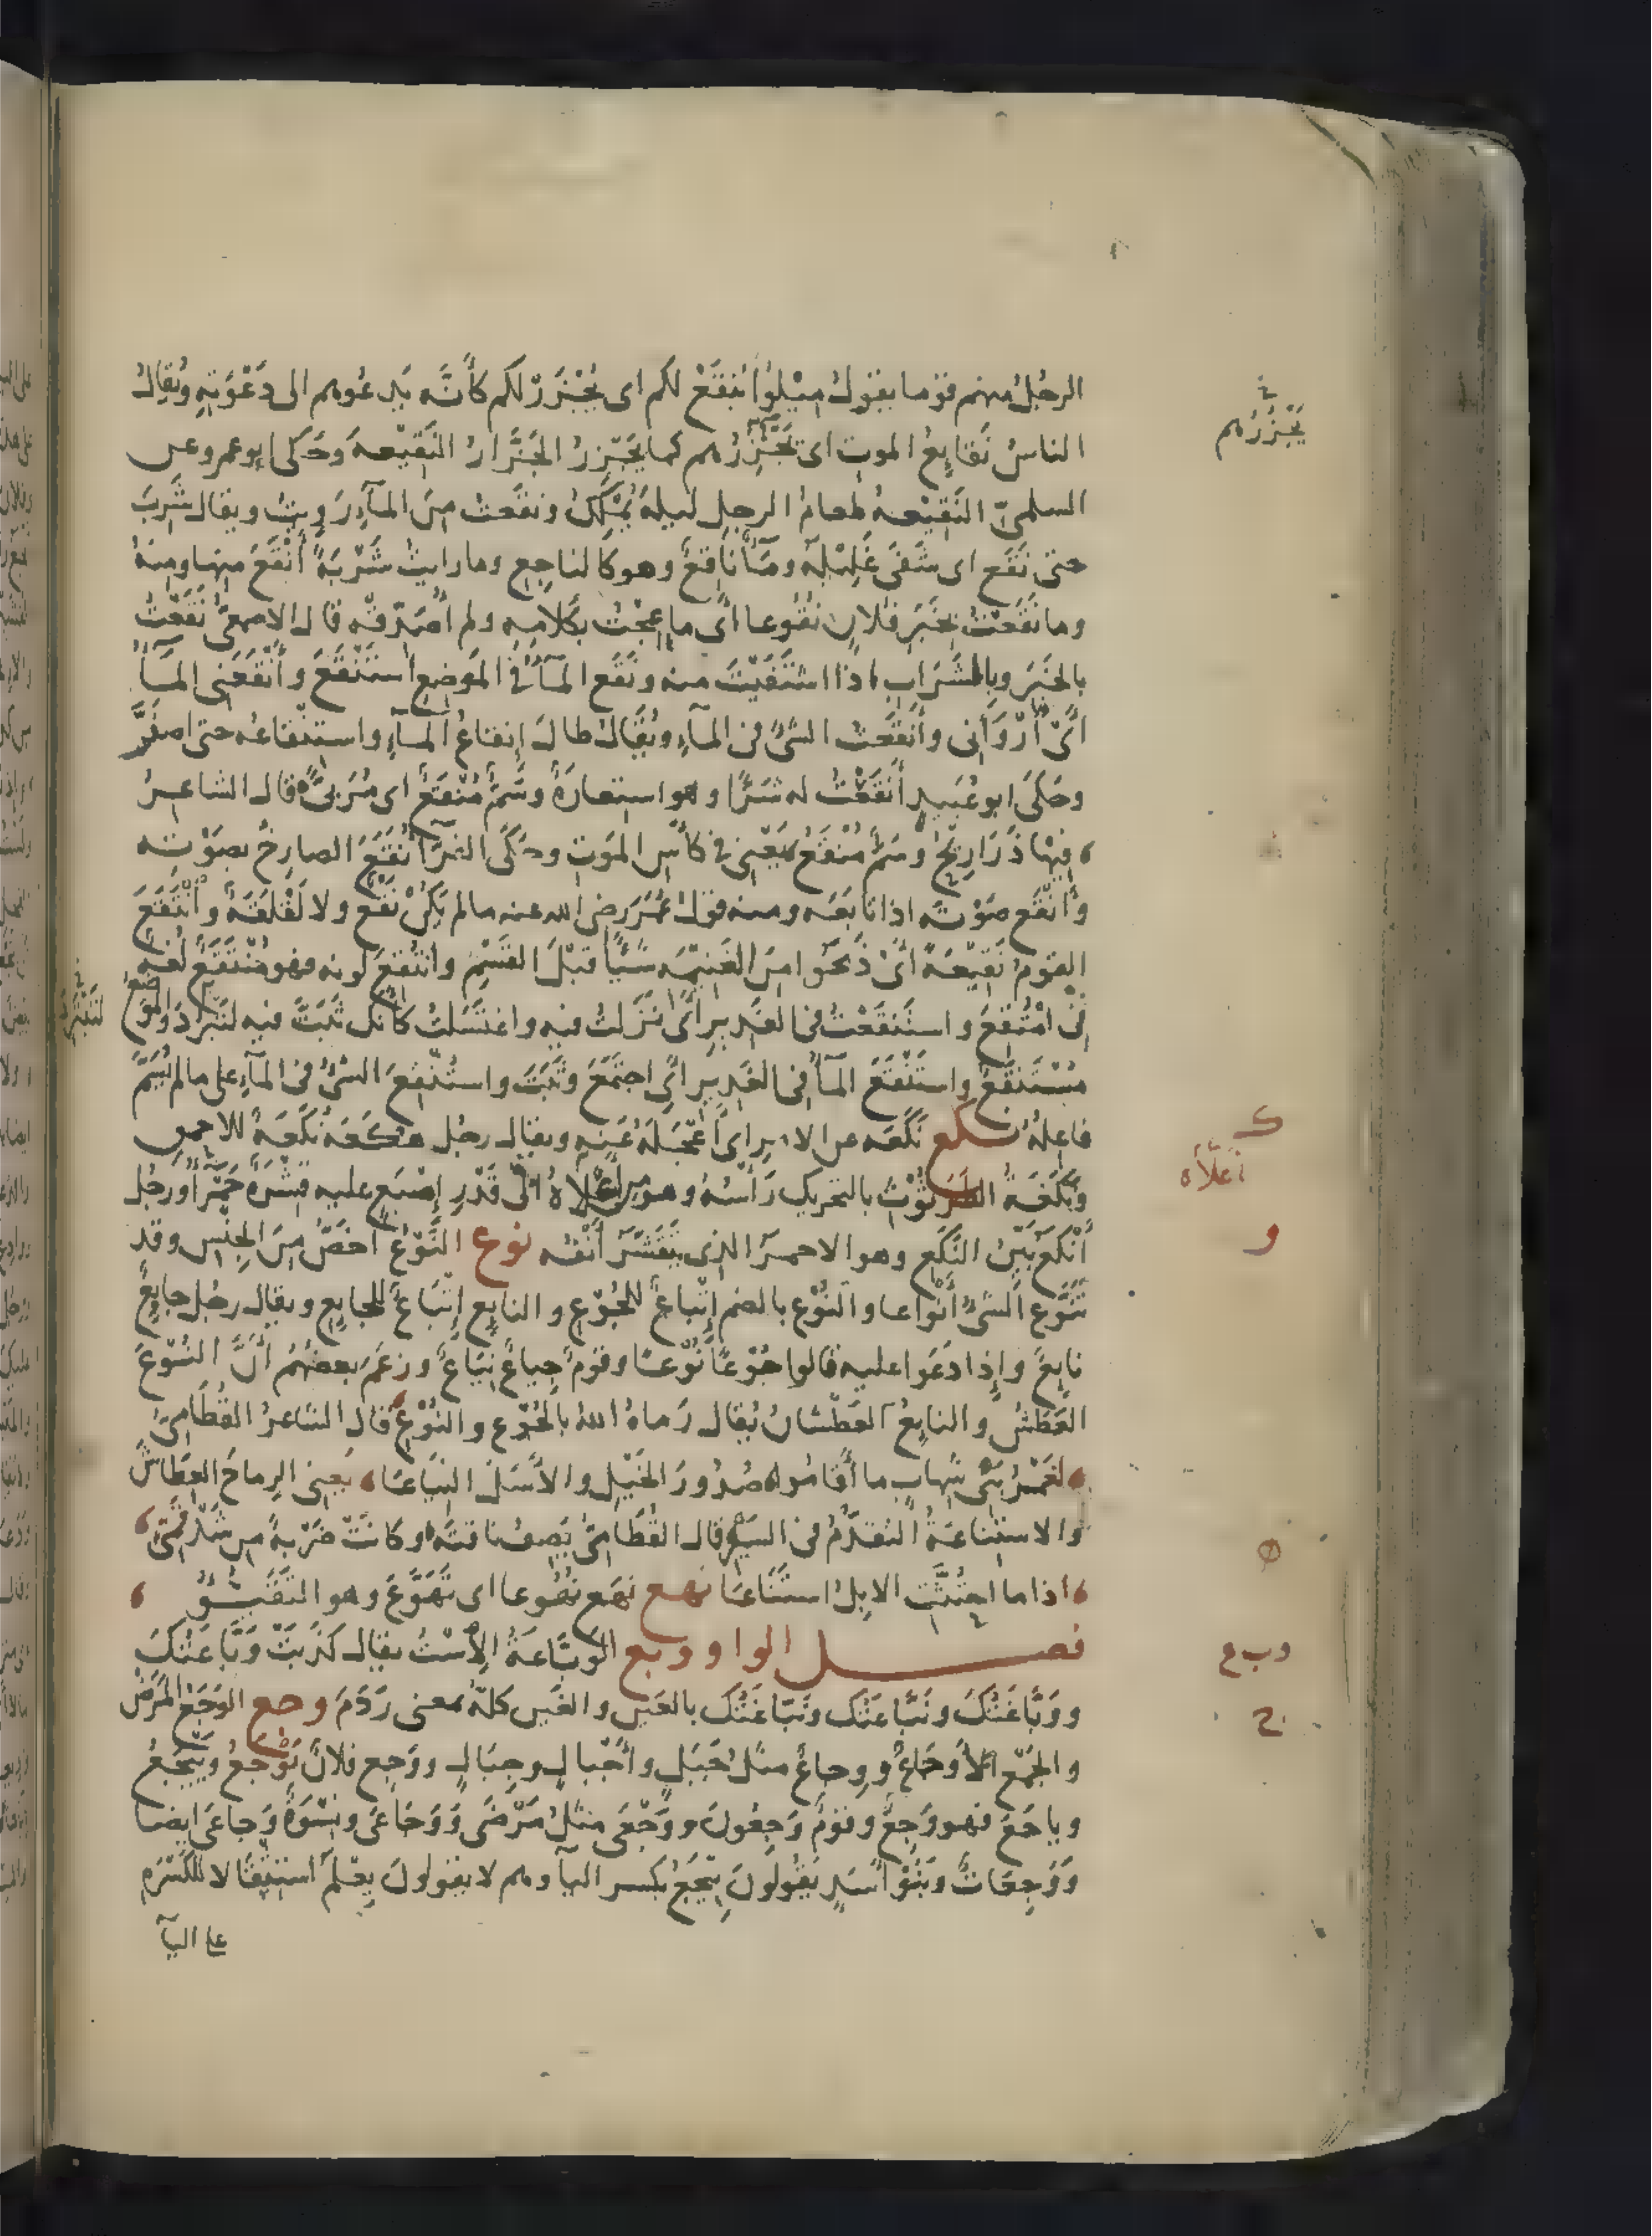 الرجُلُ منهم قومًا يقولُ مِيْلُوا يُنْقَعْ لكم اى يُجْتَزَرْ لكم كأنَّه يَدعُوهم الى دَعْوَتِهِ ويُقالُ
الناسُ نَقَايِعُ الموتِ اى يَجْتَزِرُهم كما يَجْتَزِرُ الجَزَّارُ النَقِيْعـه وَحَكَى ابو عمرو عن
السلمىّ النَقِيْعـهُ طعامُ الرجل ليلةَ يُمْلِكُ ونقَعتُ مِنَ المآءِ رَوِيتُ ويقال شَرِبَ
حتى نَقَع اى شَفَى غَلِيْلَهُ ومآءٌ نَاقِعٌ وهو كالناجِع وما رايتُ شَرْبَةً أَنْقَعَ مِنها ومنهُ
وما نَقَعْتُ بخَبَرِ فُلانٍ نُقُوعا أى ما عِجْتُ بكَلامِهِ ولم أُصَدِّقْه قال الاصمعىّ نَقَعْتُ
بالخَبَرِ وبالشَرَابِ اذا اشْتَفَيْتَ منه ونَقَع المآءُ فى المَوضِع اسْتَنْقَعَ وأَنْقَعَنى المآءُ
أىْ أَرْوَانى وأَنقَعْتُ الشىَّ فى المآءِ ويُقَالُ طالَ إنقاعُ المآءِ واستِنْقاعُه حتى اصفَرَّ
وحَكَى ابو عُبَيدٍ أَنقَعْتُ له شَرًّا وهو استِعارَةٌ وسَمٌّ مُنْقَعٌ اى مُرَبىًّ قال الشاعِرُ
فِيْها ذَرَارِيحٌ وسَمٌّ مُنْقَعُ يَعْنِى فى كأسِ المَوتِ وحَكَى الفَرّآءُ نَقَعَ الصارِخُ بصَوْتِه
وأَنْقَع صَوْتَه اذا تابَعَه ومنه قولُ عُمَرَ رضى الله عنه ما لم يَكُنْ نَقْع ولا لَقْلَقَةٌ وانْتَقَعَ
القومُ نَقِيْعَةً أىْ ذَبَحُوا مِنَ الغَنِيمَهِ شَيًّا قَبْلَ القَسْمِ وانتُقِعَ لونه فهو مُنْتَقَعٌ لُغةٌ
فى امْتُقِعَ واستَنقَعْتُ فى الغَدِيرِ أى نَزَلتُ فيه واغتَسَلتُ كأنّك ثَبَتَّ فيه لتَبَرُّدَ والموْضِعُ
مُسْتَنقَعٌ واسْتَنْقَعَ المآءُ فى الغَدِير أى اجتَمَعَ وثَبَتَ واستُنْقِعَ الشىُ فى المآءِ على ما لم يُسَمَّ
فاعِلُهُ نكع نَكَعَه عن الامرِ اى أَعْجَلَهُ عَنِهِ ويقال رجُل هُكَعَه نُكَعَةٌ للاحمق
ونَكَعَةُ الطُرْثُوْثِ بالتحريك رَأْسُهُ وهو مِن أعْلاهُ الى قَدْرِ إصْبَعٍ عليه قِشْرَةٌ حَمْرَآءُ ورجُل
أَنْكَعُ بَيّنُ النَكَعِ وهو الاحمرُ الذى يَتَقَشَّرُ أَنْفُه نوع النَّوْعُ اخَصُّ مِنَ الجِنْسِ وقد
تَنَوَّع الشىُ أنْواعا والنُوْع بالضم إتْباعٌ للجُوْعِ والنايِع إتْبَاعٌ للجايِعِ ويقال رجُل جايِعٌ
نايعٌ وإذا دَعَوا عليه قالوا جُوْعًا نُوْعًا وقومٌ جِياعٌ نِيَاعٌ وزعَمَ بعضُهُم أنَّ النُوْعَ
العَطَشُ والنايعُ العَطْشانُ يُقال رَماهُ اللهُ بالجُوْعِ والنُوْعِ قال الشاعرُ القُطَامِىّ
لعَمْرُ بَنى شِهابٍ ما أَقَامُوا صُدُورَ الخَيْلِ والأسَلَ النِيَاعَا يَعنِى الرِماحَ العِطَاشَ
والاستِناعَةُ التقَدُّمُ فى السَيْرِ قال القُطَامِىُّ يَصِفُ ناقتَهُ وكَانَتْ ضَرْبَةً مِن شَدْقَمِىّ
اذا ما احْتُثَّتِ الابِلُ استَنَاعَا نهع نَهَع نُهُوعا اى تَهَوَّعَ وهو التَقَيُّؤُ
فصل الواو وبع الوَبَّاعَةُ الاِسْتُ يقال كَذَبَتْ وَبَّاعَتُكَ
ووَبَّاغَتُكَ ونَبَّاعَتُك ونَبّاغَتُكَ بالعَينِ والغَينِ كلّه بمعنى رَدَمَ وجع الوَجَعُ المَرَضُ
والجَمْعُ الأوْجَاعُ ووِجاعٌ مثلُ جَبَلٍ وأجْبالٍ وجِبَالٍ ووَجِع فلانٌ يَوْجَعُ ويَيْجَعُ
وياجَعُ فهو وَجِعٌ وقومٌ وَجِعُونَ ووَجْعَى مثلُ مَرْضَى ووَجَاعَى ونِسْوَةٌ وَجاعَى ايضا
وَوَجِعَاتٌ وبَنُوْ أسَدٍ يَقُولونَ يِيْجَعُ بكسر اليآ وهم لا يقولون يِعْلَمُ استِثْقَالا للكَسْرَةِ
على اليآ
يَجْتَزِرُهم
ك
أعلاه
و
وبع
ج